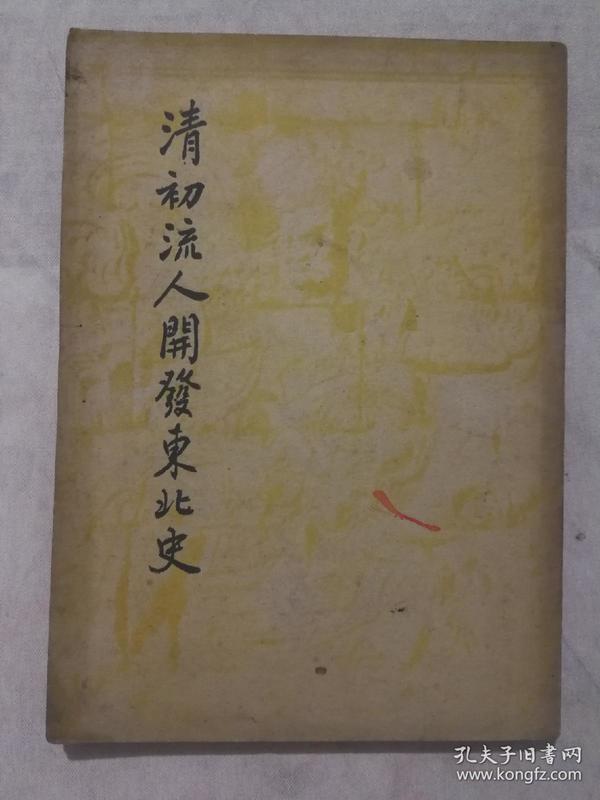 清初流人開發東北史
孔夫子旧書网
www.kongfz.com